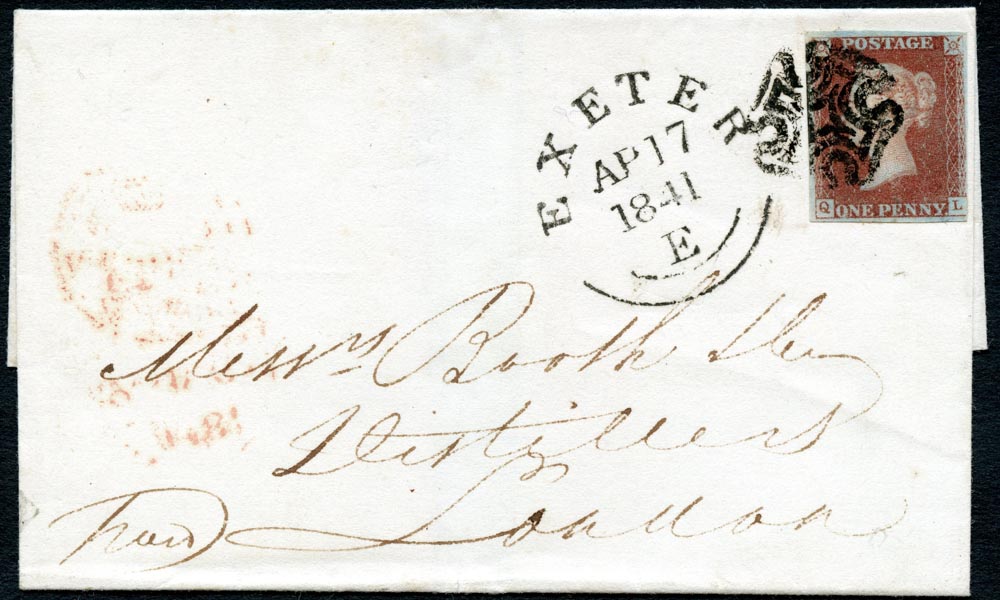 POSTAGE
ONE PENNY
Q L
EXETER
AP 17
1841
E
Messrs Booth &
Distillers
London